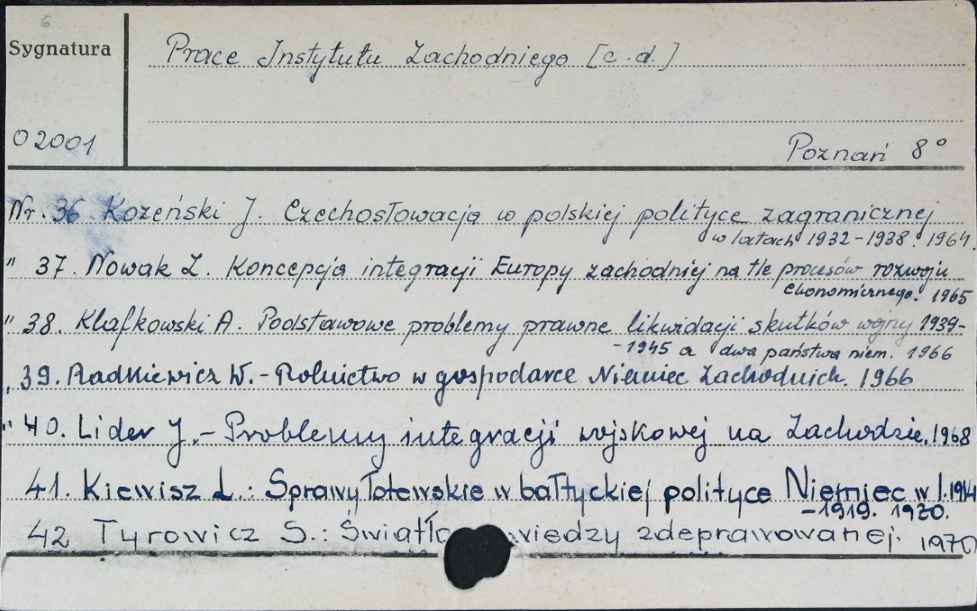 6
Sygnatura
Prace Instytutu Zachodniego [c.d.]
02001
Poznań 8°
Nr. 36 Kozeński J. Czechosłowacja w polskiej polityce zagranicznej
w latach 1932-1938. 1964
" 37. Nowak Z. Koncepcja integracji Europy zachodniej na tle procesów rozwoju
ekonomicznego. 1965
" 38. Klafkowski A. Podstawowe problemy prawne likwidacji skutków wojny 1939-
-1945 a dwa państwa niem. 1966
" 39. Radkiewicz W. - Rolnictwo w gospodarce Niemiec Zachodnich. 1966
" 40. Lider J. - Problemy integracji wojskowej na Zachodzie. 1968
41. Kiewisz L.: Sprawy łotewskie w bałtyckiej polityce Niemiec w l. 1914
-1919. 1970.
42 Tyrowicz S.: Światło wiedzy zdeprawowanej. 1970